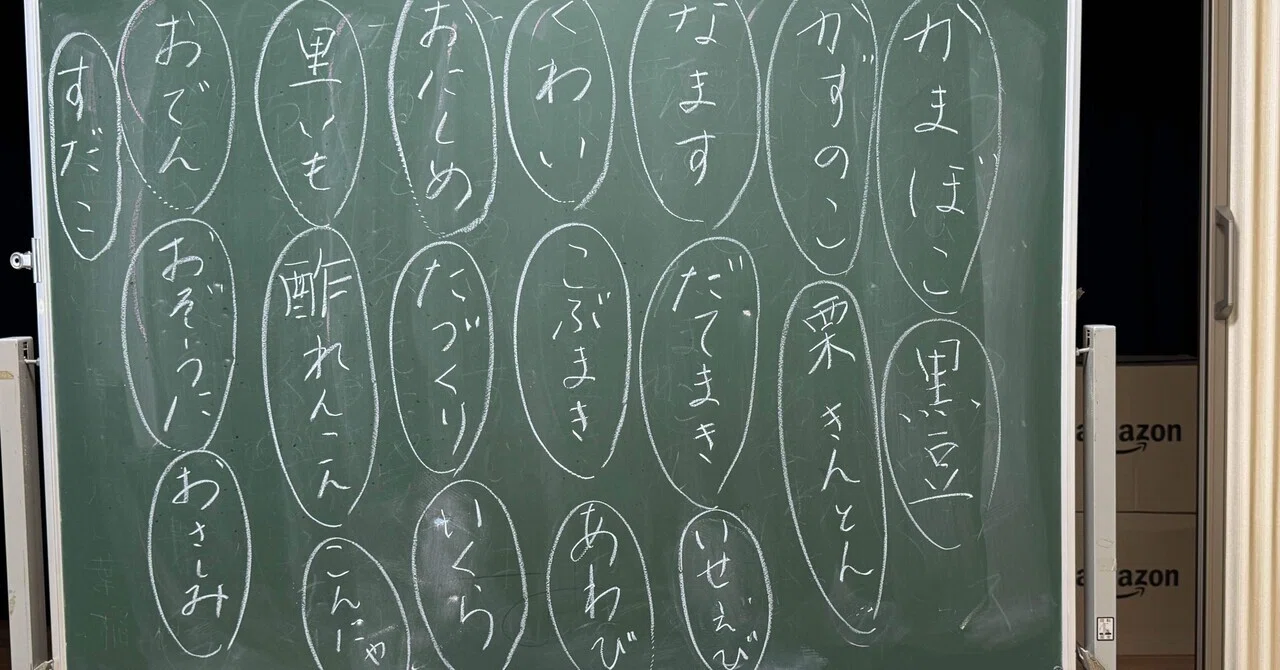 かまぼこ
黒豆
かずのこ
栗きんとん
なます
だてまき
いせえび
くわい
こぶまき
あわび
おにしめ
たづくり
いくら
里いも
酢れんこん
こんにゃ
おでん
おぞうに
おさしみ
すだこ
mazon
mazon